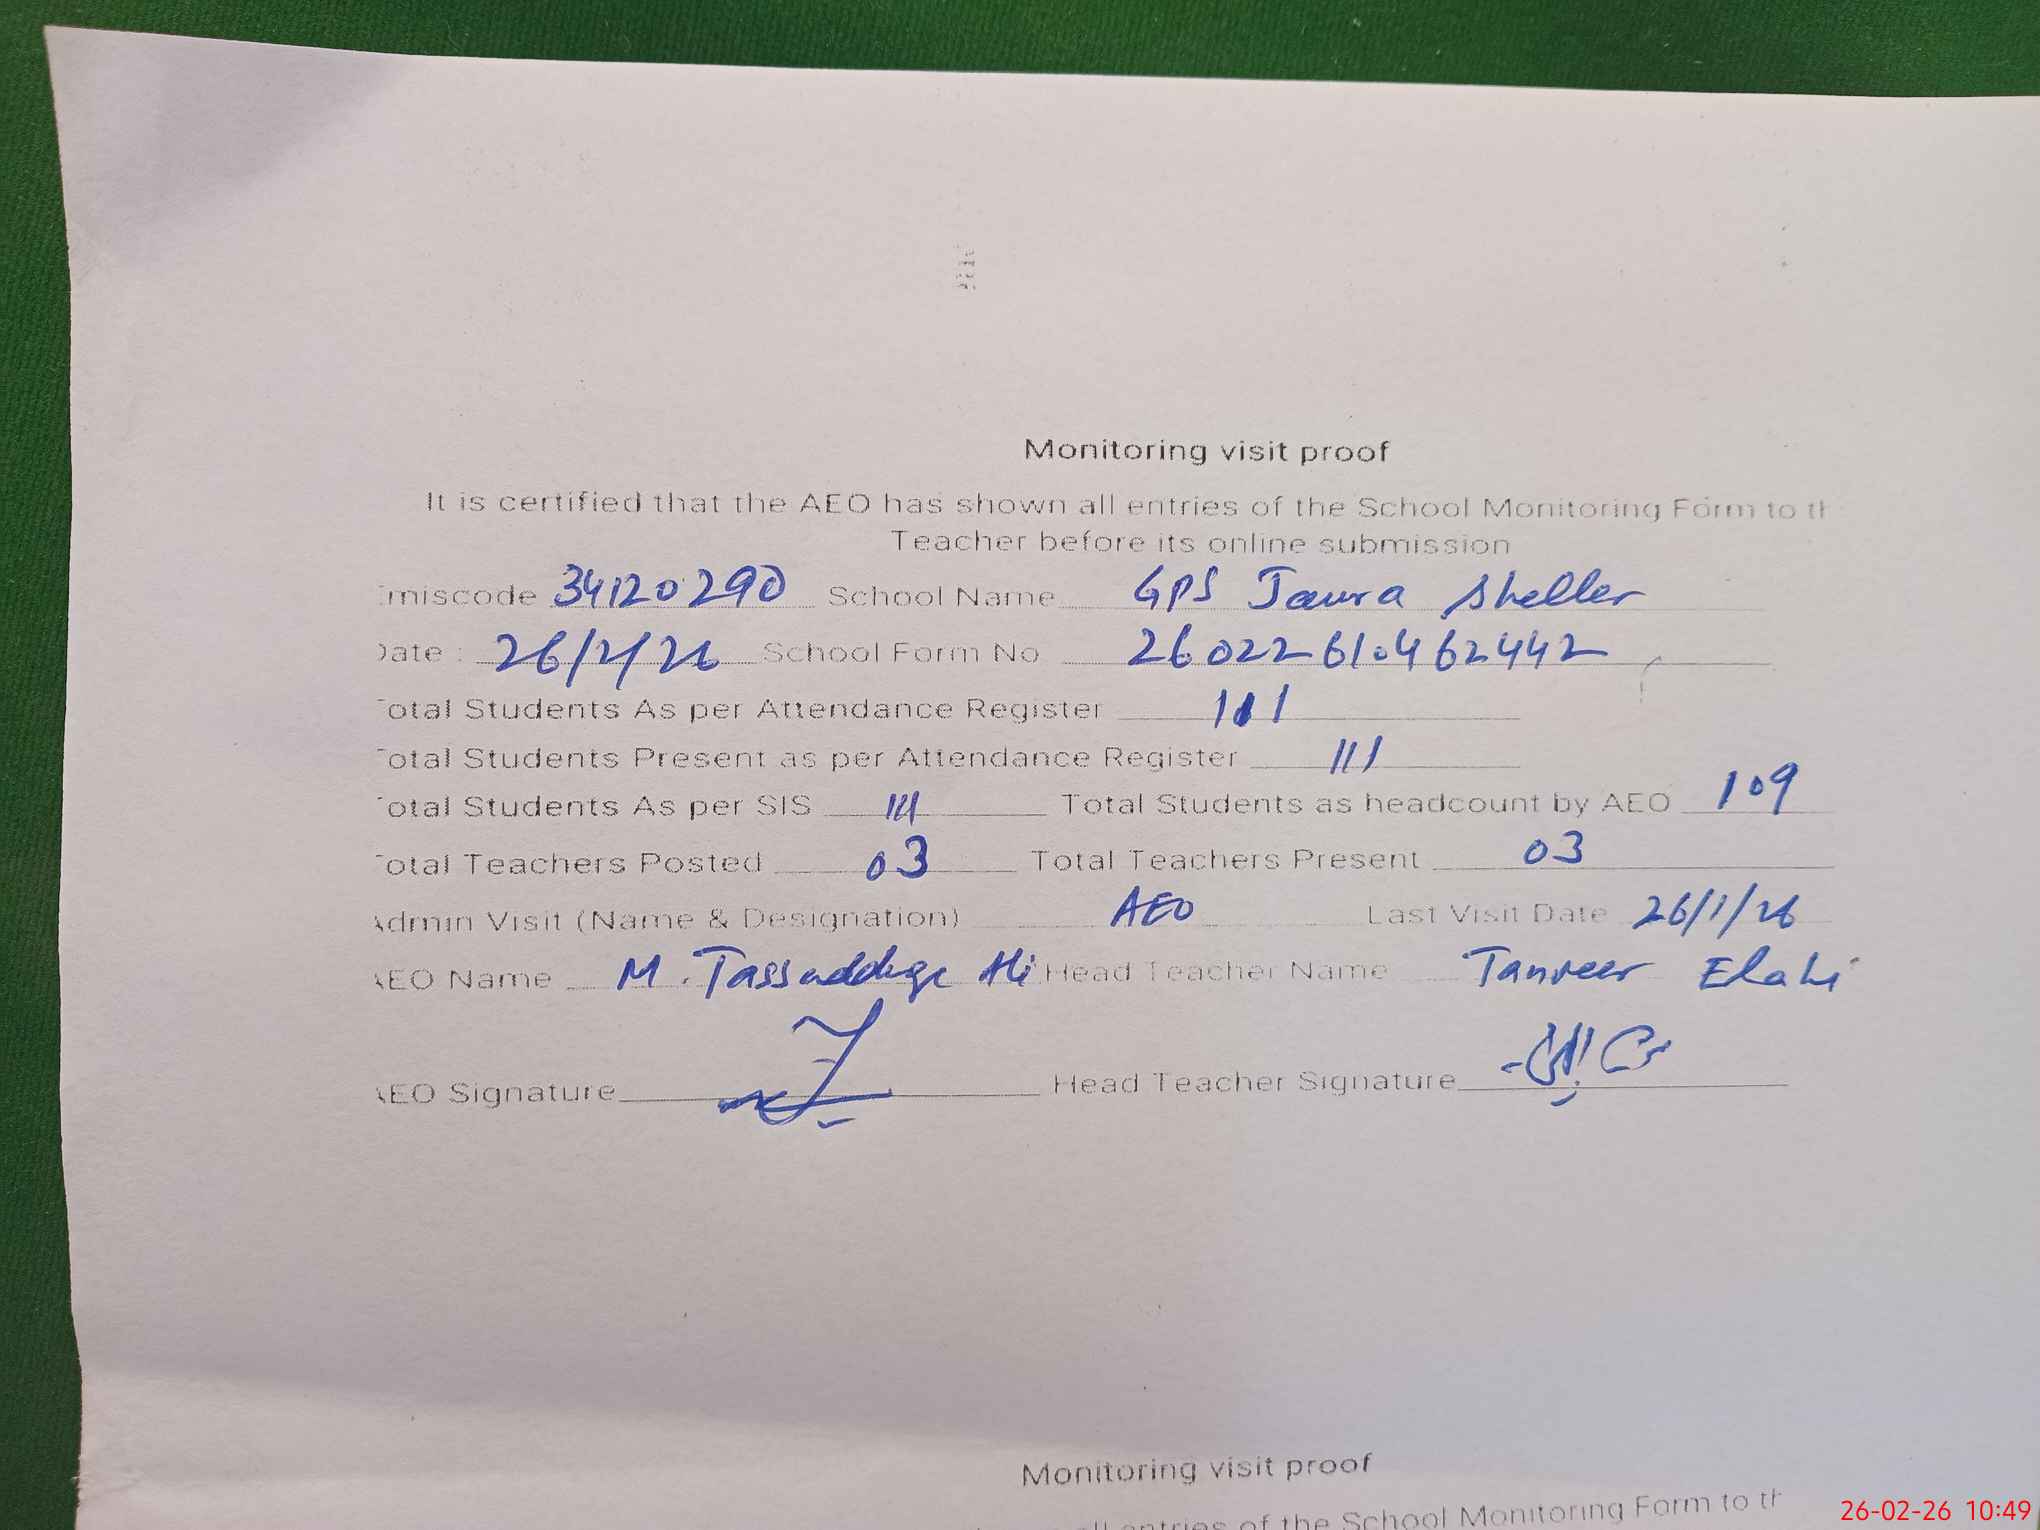 Monitoring visit proof
It is certified that the AEO has shown all entries of the School Monitoring Form to th
Teacher before its online submission
Emiscode 34120290 School Name GPS Jaura Sheller
Date : 26/2/26 School Form No 26022610462442
Total Students As per Attendance Register 111
Total Students Present as per Attendance Register 111
Total Students As per SIS 111 Total Students as headcount by AEO 109
Total Teachers Posted 03 Total Teachers Present 03
Admin Visit (Name & Designation) AEO Last Visit Date 26/1/26
AEO Name M. Tassadduqe Ali Head Teacher Name Tanveer Elahi
AEO Signature Head Teacher Signature
Monitoring visit proof
all entries of the School Monitoring Form to th
26-02-26 10:49